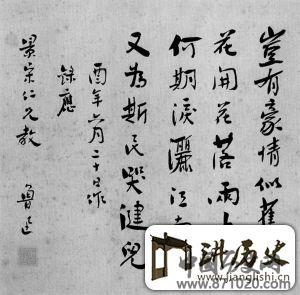 豈有豪情似舊
花開花落兩
何期淚灑江
又為斯民哭健兒
酉年六月二十日作
錄應
景宋仁兄教 魯迅
讲历史
www.jianglishi.cn
www.871020.com